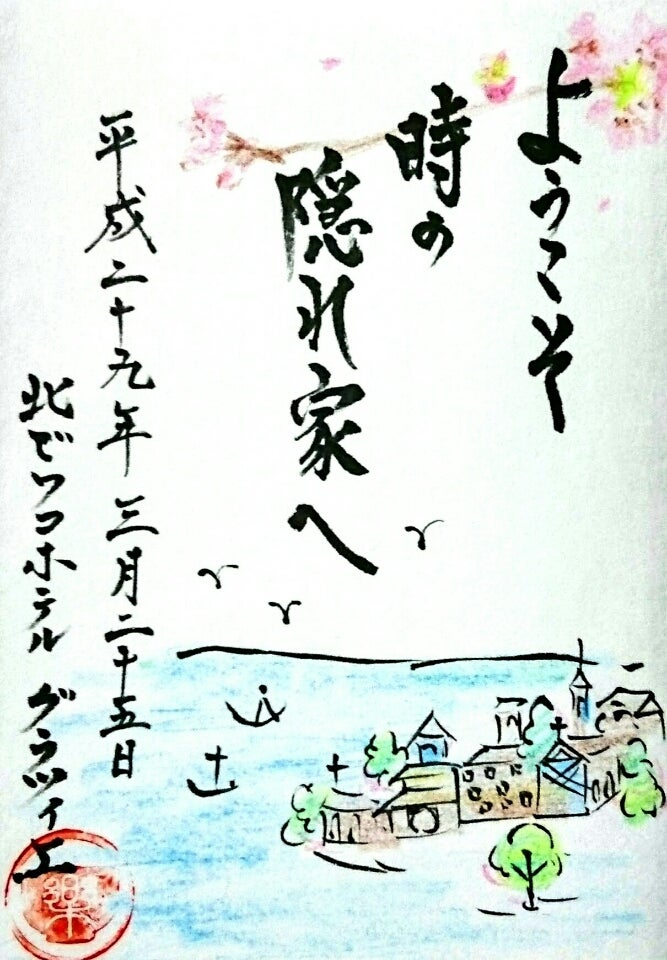 ようこそ
時の
隠れ家へ
平成二十九年 三月二十五日
北ビワコホテル グラツィエ